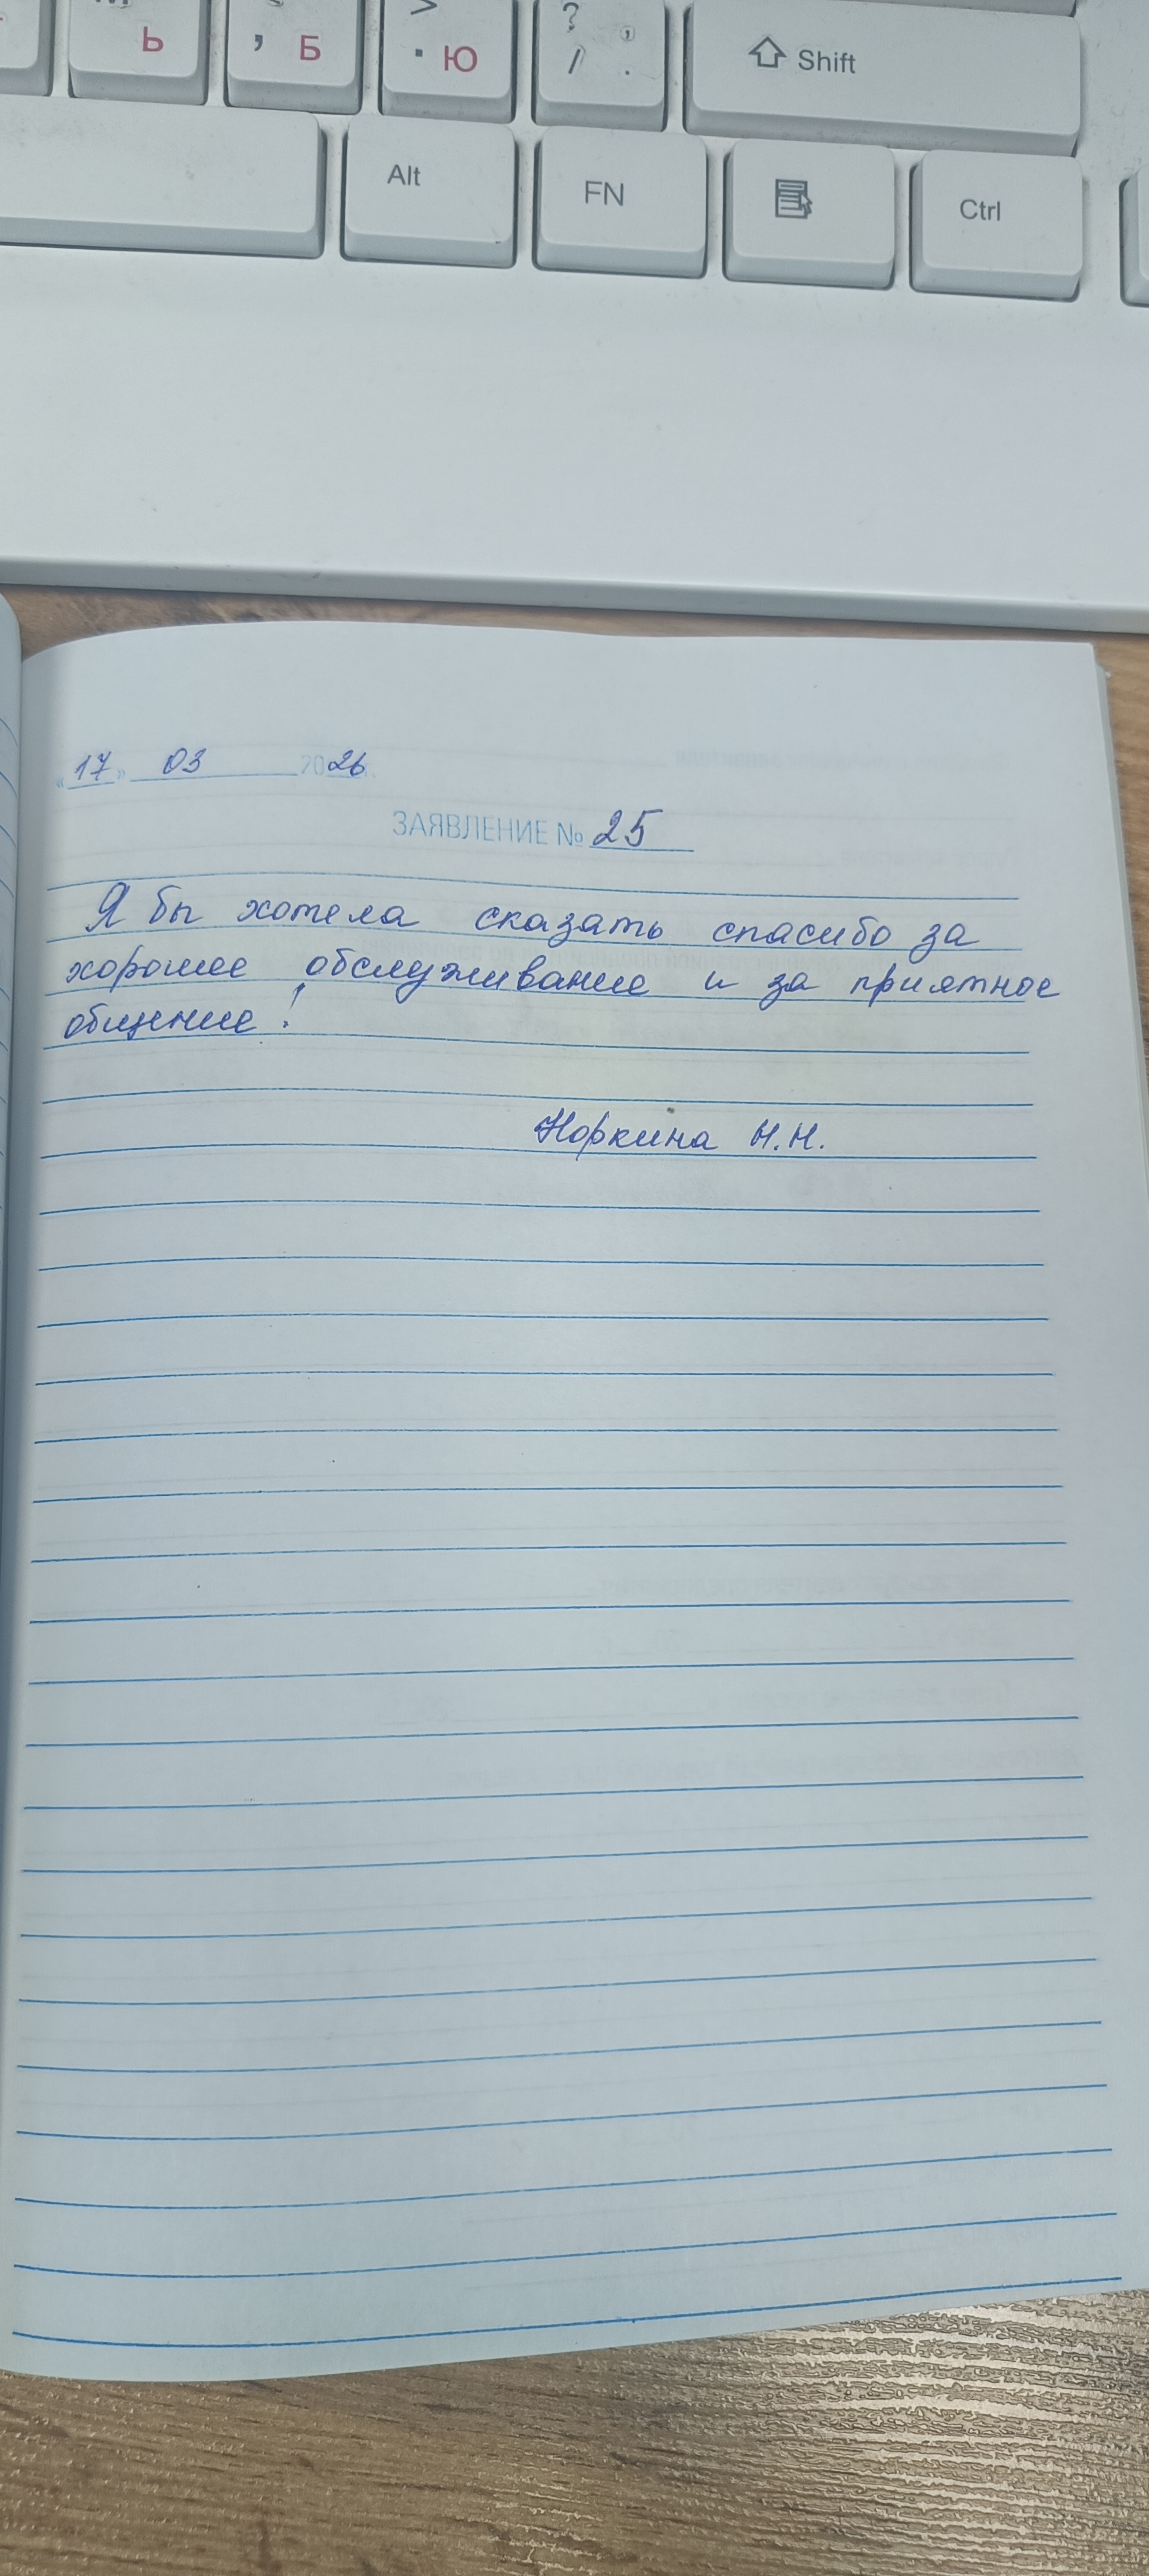 Ь , Б > . Ю ? / , . Shift
Alt FN Ctrl
«17» 03 2026 г.
ЗАЯВЛЕНИЕ № 25
Я бы хотела сказать спасибо за
хорошее обслуживание и за приятное
общение!
Норкина Н.Н.